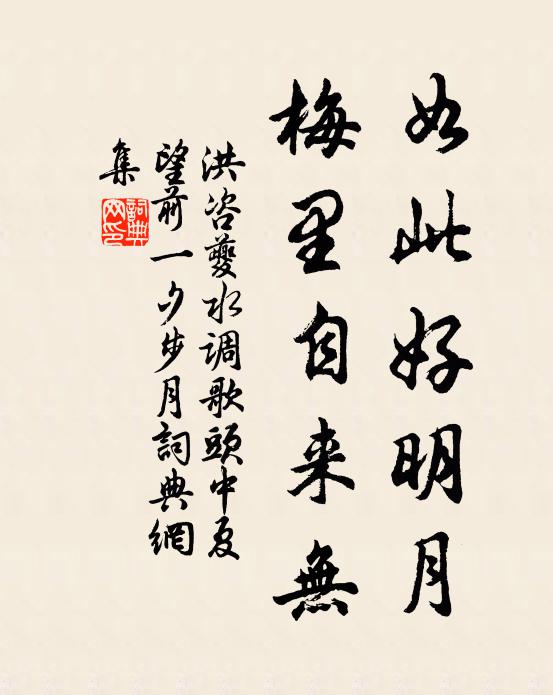 如此好明月
梅里自来無
洪咨夔水调歌頭中夏
望前一夕步月詞典網
集
詞典
网印